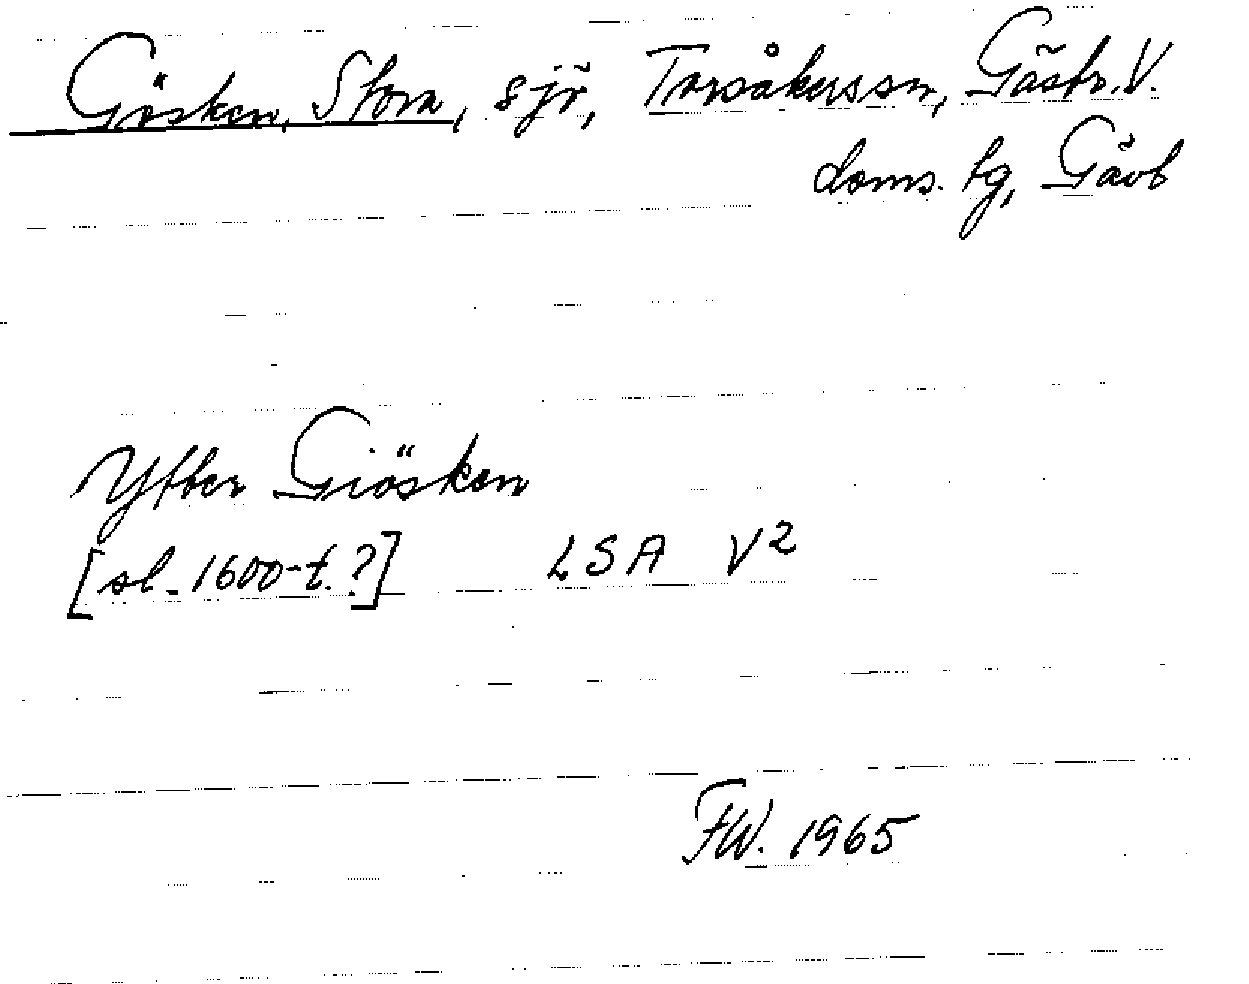 Gösken, Stora, sjö, Torsåkerssn, Gästr. V.
doms. tg, Gävl
Ytter Giösken
[sl. 1600-t.?] LSA V2
FW. 1965